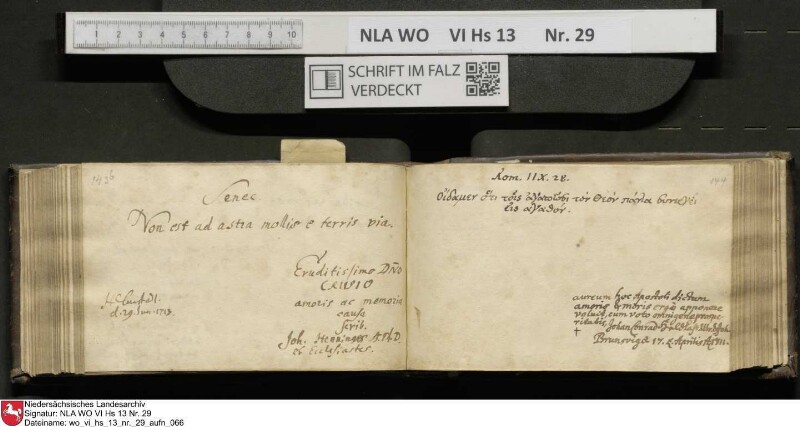 1 2 3 4 5 6 7 8 9 10
NLA WO VI Hs 13 Nr. 29
SCHRIFT IM FALZ
VERDECKT
Senec.
Non est ad astra mollis e terris via.
Eruditissimo Dno
CRUSIO
amoris ac memoriæ
causa
scrib.
Joh. Henninges
et Ecclesiastes.
d. 29. Jun. 1713.
Rom. IIX. 28.
Οἴδαμεν ὅτι τοῖς ἀγαπῶσι τὸν Θεόν πάντα συνεργεῖ
εἰς ἀγαθόν.
aureum hoc Apostoli dictum
amoris & moris ergo apponere
voluit, cum voto
Johan Conrad
Brunsvigæ 17. Aprilis
Niedersächsisches Landesarchiv
Signatur: NLA WO VI Hs 13 Nr. 29
Dateiname: wo_vi_hs_13_nr._29_aufn_066